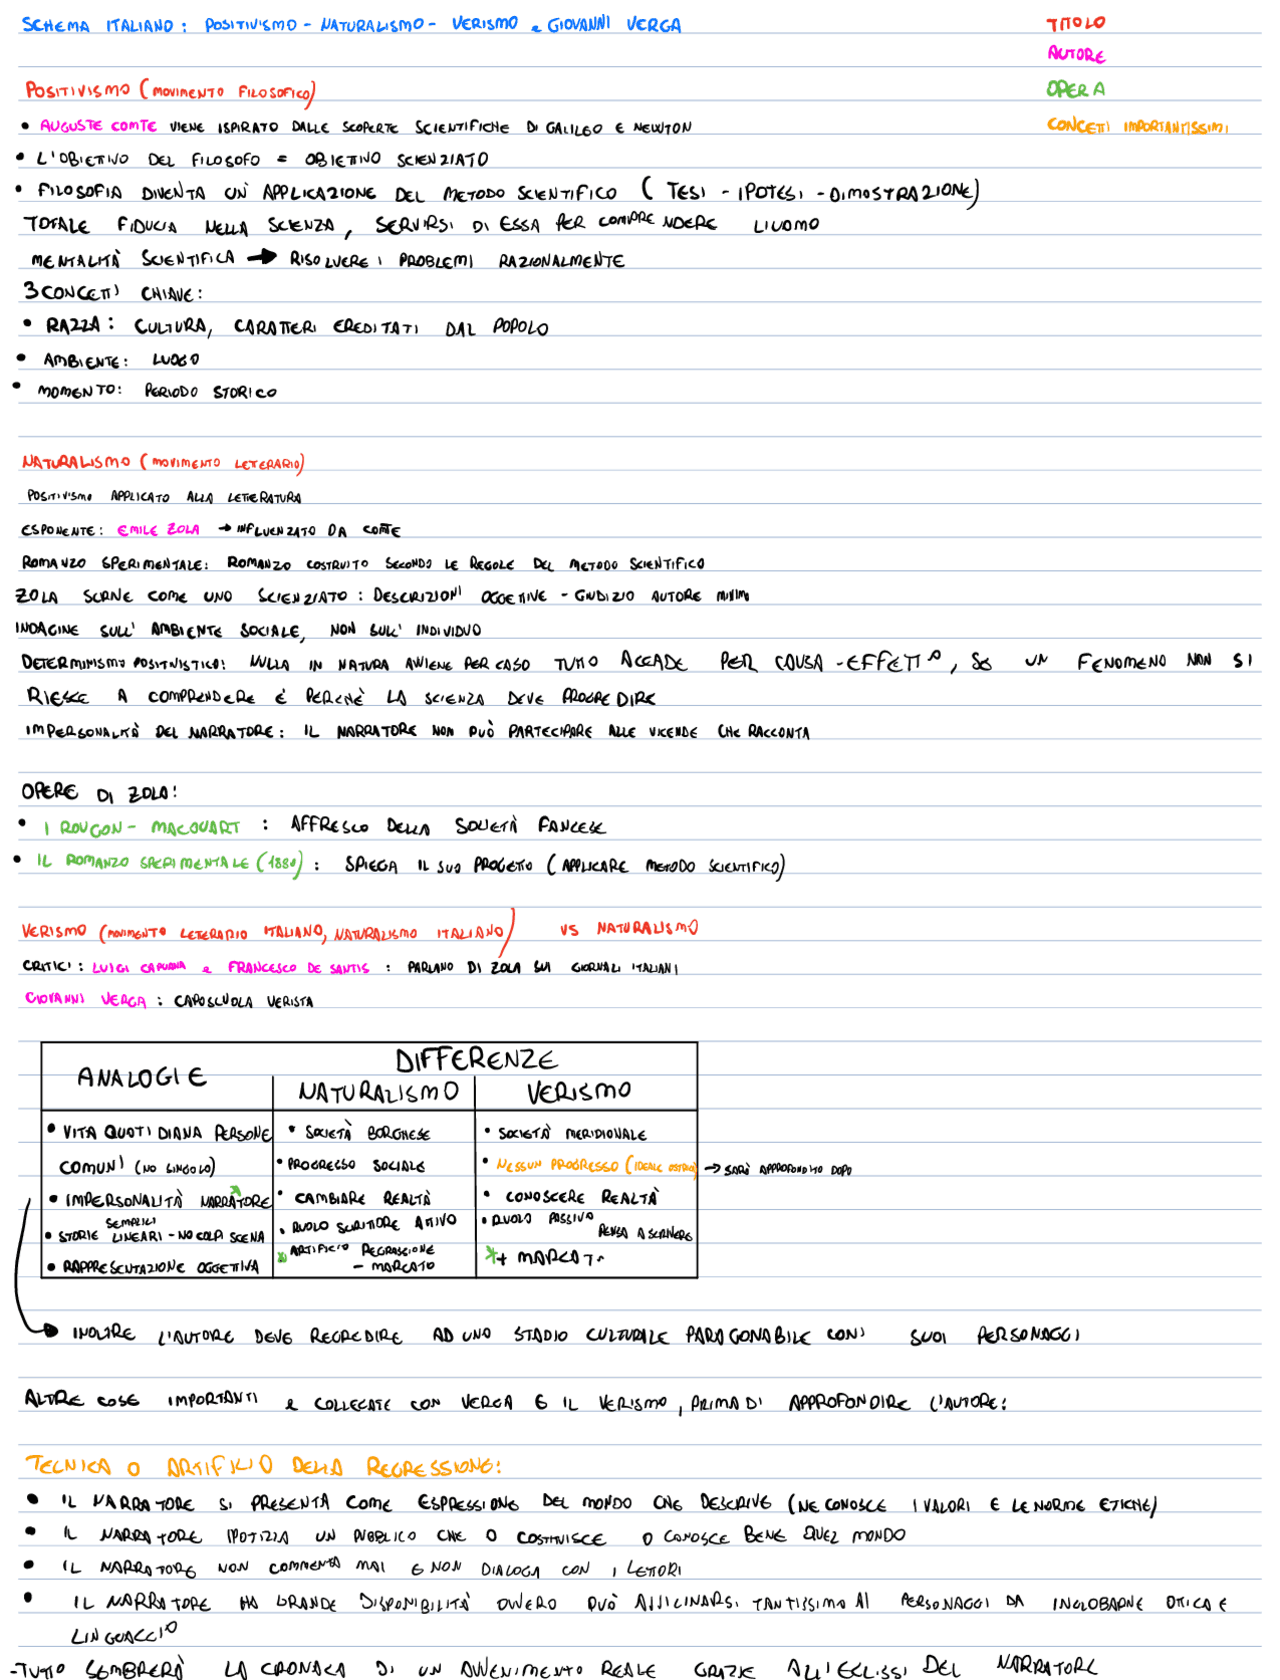 SCHEMA ITALIANO: POSITIVISMO - NATURALISMO - VERISMO e GIOVANNI VERGA
TITOLO
AUTORE
OPERA
CONCETTI IMPORTANTISSIMI
POSITIVISMO (MOVIMENTO FILOSOFICO)
• AUGUSTE COMTE VIENE ISPIRATO DALLE SCOPERTE SCIENTIFICHE DI GALILEO E NEWTON
• L'OBIETTIVO DEL FILOSOFO = OBIETTIVO SCIENZIATO
• FILOSOFIA DIVENTA UN'APPLICAZIONE DEL METODO SCIENTIFICO (TESI - IPOTESI - DIMOSTRAZIONE)
TOTALE FIDUCIA NELLA SCIENZA, SERVIRSI DI ESSA PER COMPRENDERE L'UOMO
MENTALITÀ SCIENTIFICA → RISOLVERE I PROBLEMI RAZIONALMENTE
3 CONCETTI CHIAVE:
• RAZZA: CULTURA, CARATTERI EREDITATI DAL POPOLO
• AMBIENTE: LUOGO
• MOMENTO: PERIODO STORICO
NATURALISMO (MOVIMENTO LETERARIO)
POSITIVISMO APPLICATO ALLA LETTERATURA
ESPONENTE: EMILE ZOLA → INFLUENZATO DA COMTE
ROMANZO SPERIMENTALE: ROMANZO COSTRUITO SECONDO LE REGOLE DEL METODO SCIENTIFICO
ZOLA SCRIVE COME UNO SCIENZIATO: DESCRIZIONI OGGETTIVE - GIUDIZIO AUTORE MINIMI
INDAGINE SULL'AMBIENTE SOCIALE, NON SULL'INDIVIDUO
DETERMINISMO POSITIVISTICO: NULLA IN NATURA AVVIENE PER CASO TUTTO ACCADE PER CAUSA-EFFETTO, SE UN FENOMENO NON SI
RIESCE A COMPRENDERE È PERCHÈ LA SCIENZA DEVE PROGREDIRE
IMPERSONALITÀ DEL NARRATORE: IL NARRATORE NON PUÒ PARTECIPARE ALLE VICENDE CHE RACCONTA
OPERE DI ZOLA:
• I ROUGON-MACQUART: AFFRESCO DELLA SOCIETÀ FANCESE
• IL ROMANZO SPERIMENTALE (1880): SPIEGA IL SUO PROGETTO (APPLICARE METODO SCIENTIFICO)
VERISMO (MOVIMENTO LETERARIO ITALIANO, NATURALISMO ITALIANO) VS NATURALISMO
CRITICI: LUIGI CAPUANA e FRANCESCO DE SANTIS: PARLANO DI ZOLA SUI GIORNALI ITALIANI
GIOVANNI VERGA: CAPOSCUOLA VERISTA
ANALOGIE
DIFFERENZE
NATURALISMO
VERISMO
• VITA QUOTIDIANA PERSONE
COMUNI (NO SINGOLO)
• IMPERSONALITÀ NARRATORE
• STORIE SEMPLICI LINEARI - NO COLPI SCENA
• RAPPRESENTAZIONE OGGETTIVA
• SOCIETÀ BORGHESE
• PROGRESSO SOCIALE
• CAMBIARE REALTÀ
• RUOLO SCRITTORE ATTIVO
* ARTIFICIO REGRESSIONE
- MARCATO
• SOCIETÀ MERIDIONALE
• NESSUN PROGRESSO (IDEALE OSTRICA) → SARÀ APPROFONDITO DOPO
• CONOSCERE REALTÀ
• RUOLO PASSIVO PENSA A SCRIVERE
* + MARCATO
INOLTRE L'AUTORE DEVE REGREDIRE AD UNO STADIO CULTURALE PARAGONABILE CON I SUOI PERSONAGGI
ALTRE COSE IMPORTANTI e COLLEGATE CON VERGA E IL VERISMO, PRIMA DI APPROFONDIRE L'AUTORE:
TECNICA O ARTIFICIO DELLA REGRESSIONE:
• IL NARRATORE SI PRESENTA COME ESPRESSIONE DEL MONDO CHE DESCRIVE (NE CONOSCE I VALORI E LE NORME ETICHE)
• IL NARRATORE IPOTIZZA UN PUBBLICO CHE O COSTITUISCE O CONOSCE BENE QUEL MONDO
• IL NARRATORE NON COMMENTA MAI E NON DIALOGA CON I LETTORI
• IL NARRATORE HA GRANDE DISPONIBILITÀ OVVERO PUÒ AVVICINARSI TANTISSIMO AI PERSONAGGI DA INGLOBARNE OTTICA E
LINGUAGGIO
-TUTTO SEMBRERÀ LA CRONACA DI UN AVVENIMENTO REALE GRAZIE ALL'ECLISSI DEL NARRATORE